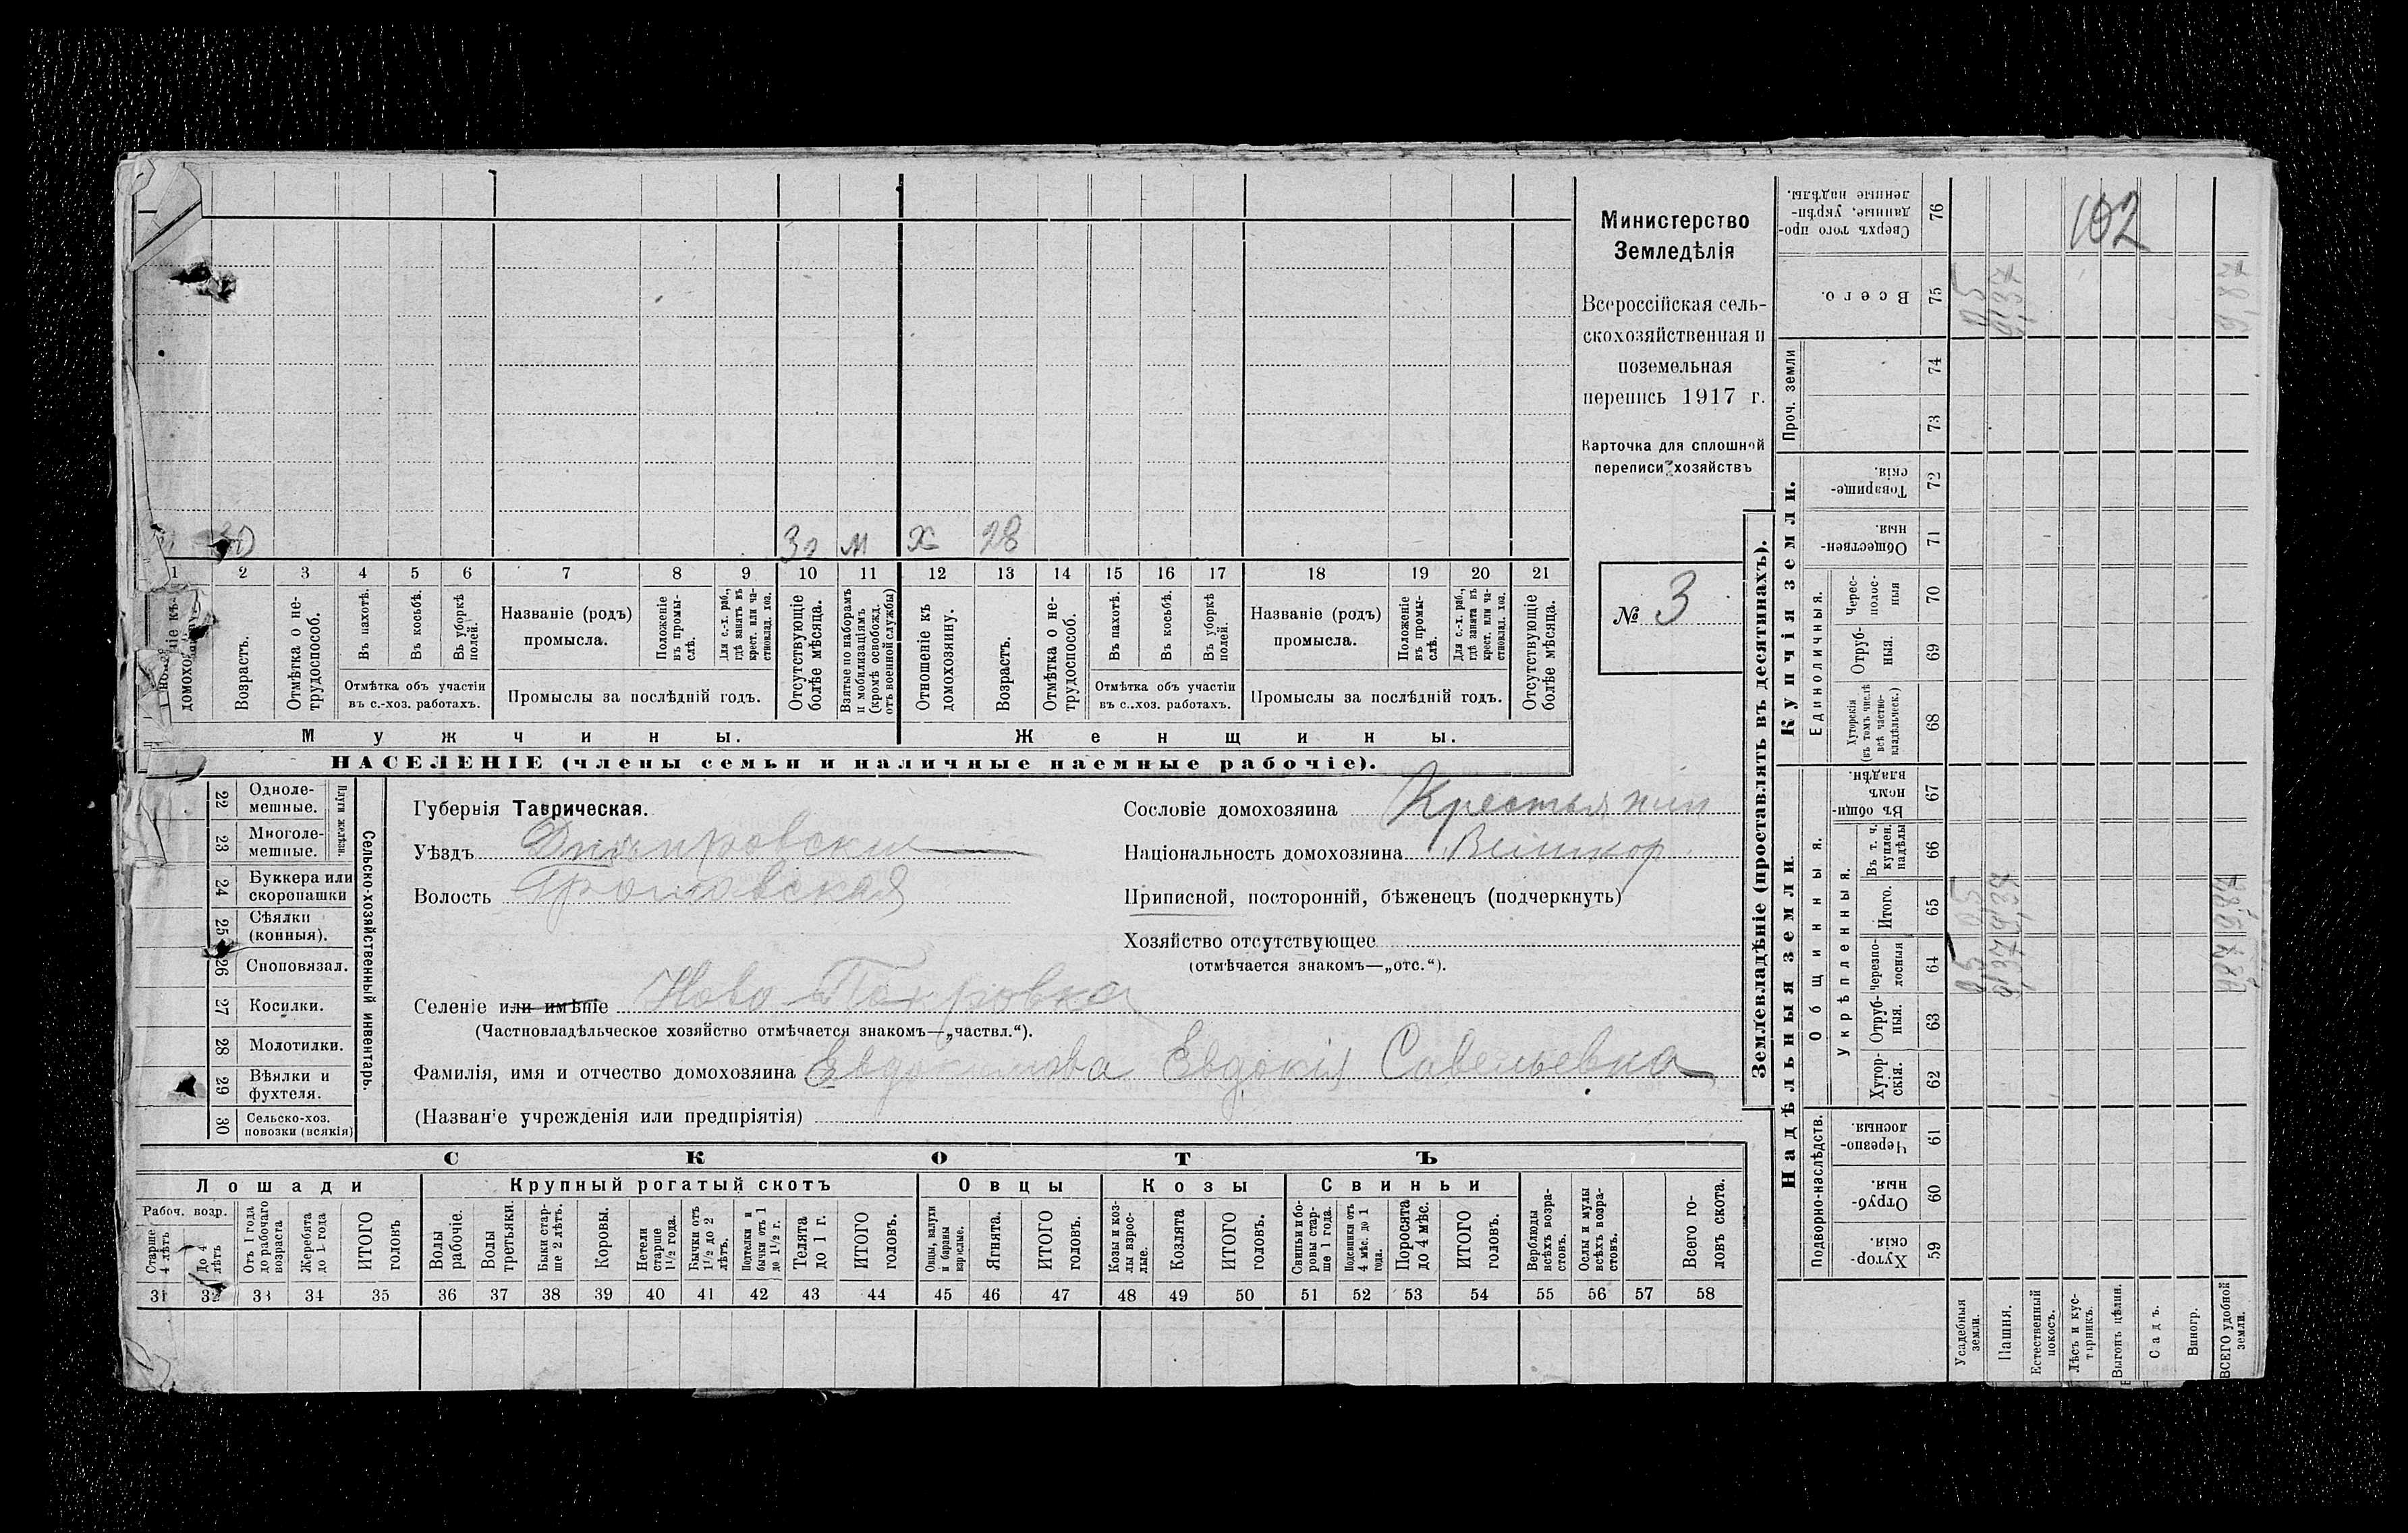 Министерство
Земледѣлія
Всероссійская сель-
скохозяйственная и
поземельная
перепись 1917 г.
Карточка для сплошной
переписи хозяйствъ
№ 3
102
30 30 м х 28
1 2 3 4 5 6 7 8 9 10 11 12 13 14 15 16 17 18 19 20 21
домохоз
Возрастъ.
Отмѣтка о не-
трудоспособ.
Въ пахотѣ.
Въ косьбѣ.
Въ уборкѣ
полей.
Отмѣтка объ участіи
въ с.-хоз. работахъ.
Названіе (родъ)
промысла.
Положеніе
въ промы-
слѣ.
Для с.-х. раб.,
гдѣ занятъ въ
крест. или ча-
стновлад. хоз.
Промыслы за послѣдній годъ.
Отсутствующіе
болѣе мѣсяца.
Взятые по наборамъ
и мобилизаціямъ
(кромѣ освобожд.
отъ военной службы)
Отношеніе къ
домохозяину.
Возрастъ.
Отмѣтка о не-
трудоспособ.
Въ пахотѣ.
Въ косьбѣ.
Въ уборкѣ
полей.
Отмѣтка объ участіи
въ с..хоз. работахъ.
Названіе (родъ)
промысла.
Положеніе
въ промы-
слѣ.
Для с.-х. раб.,
гдѣ занятъ въ
крест. или ча-
стновлад. хоз.
Промыслы за послѣдній годъ.
Отсутствующіе
болѣе мѣсяца.
Мужчины.
Женщины.
НАСЕЛЕНІЕ (члены семьи и наличные наемные рабочіе).
22 Одноле-
мешные.
23 Многоле-
мешные.
Плуги желѣзн.
24 Буккера или
скоропашки
25 Сѣялки
(конныя).
26 Сноповязал.
27 Косилки.
28 Молотилки.
29 Вѣялки и
фухтеля.
30 Сельско-хоз.
повозки (всякія)
Сельско-хозяйственный инвентарь.
Губернія Таврическая.
Уѣздъ Днѣпровскій
Волость
Селеніе или имѣніе Ново Покровка
(Частновладѣльческое хозяйство отмѣчается знакомъ—„частвл.“).
Фамилія, имя и отчество домохозяина Евдокимова Евдокія Савельевна
(Названіе учрежденія или предпріятія)
Сословіе домохозяина Крестьянин
Національность домохозяина Великор
Приписной, посторонній, бѣженецъ (подчеркнуть)
Хозяйство отсутствующее
(отмѣчается знакомъ—„отс.“).
СКОТЪ
Лошади
Рабоч. возр.
Старше
4 лѣтъ
До 4
лѣтъ
Отъ 1 года
до рабочаго
возраста
Жеребята
до 1 года
ИТОГО
головъ
Крупный рогатый скотъ
Волы
рабочіе.
Волы
третьяки.
Быки стар-
ше 2 лѣтъ.
Коровы.
Нетели
старше
1½ года.
Бычки отъ
1½ до 2
лѣтъ.
Подтелки и
бычки отъ 1
до 1½ г.
Телята
до 1 г.
ИТОГО
головъ.
Овцы
Овцы, валухи
и бараны
взрослые.
Ягнята.
ИТОГО
головъ.
Козы
Козы и коз-
лы взрос-
лые.
Козлята
ИТОГО
головъ.
Свиньи
Свиньи и бо-
ровы стар-
ше 1 года.
Подсвинки отъ
4 мѣс. до 1
года.
Поросята
до 4 мѣс.
ИТОГО
головъ.
Верблюды
всѣхъ возра-
стовъ.
Ослы и мулы
всѣхъ возра-
стовъ.
Всего го-
ловъ скота.
31 32 33 34 35 36 37 38 39 40 41 42 43 44 45 46 47 48 49 50 51 52 53 54 55 56 57 58
Землевладѣніе (проставлять въ десятинахъ).
Надѣльныя земли.
Подворно-наслѣдств.
59 Хутор-
скія.
60 Отруб-
ныя.
61 Черезпо-
лосныя
Общинныя.
Укрѣпленныя.
62 Хутор-
скія.
63 Отруб-
ныя.
64 Черезпо-
лосныя
65 Итого.
66 Въ т. ч.
куплен.
надѣлы
67 Въ общи-
номъ
владѣн.
Купчія земли.
Единоличныя.
68 Хуторскія
(въ томъ числѣ
всѣ частно-
владѣльческ.)
69 Отруб-
ныя
70 Черес-
полос-
ныя
71 Обществен-
ныя.
72 Товарище-
скія.
Проч. земли
73 74
75 Всего.
76 Сверхъ того про-
данные, укрѣп-
ленные надѣлы.
Усадебныя
земли.
0,5 0,5 0,5
Пашня.
9,37 9,37 9,37
Естественный
покосъ.
Лѣсъ и кус-
тарникъ.
Выгонъ цѣлин.
Садъ.
Виногр.
ВСЕГО удобной
земли.
9,87 9,87 9,87